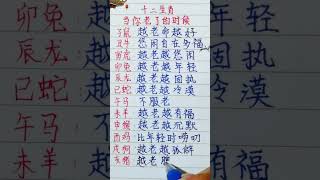 十二生肖
当你老了的时候
子鼠 越老命越好
丑牛 悠闲自在多福
寅虎 越老越悠闲
卯兔 越老越年轻
辰龙 越老越固执
巳蛇 越老越冷漠
午马 不服老
未羊 越老越有福
申猴 越老越沉默
酉鸡 比年轻时唠叨
戌狗 越老越
亥猪 越老
卯兔
辰龙
巳蛇
午马
未羊
年轻
固执
冷漠
有福